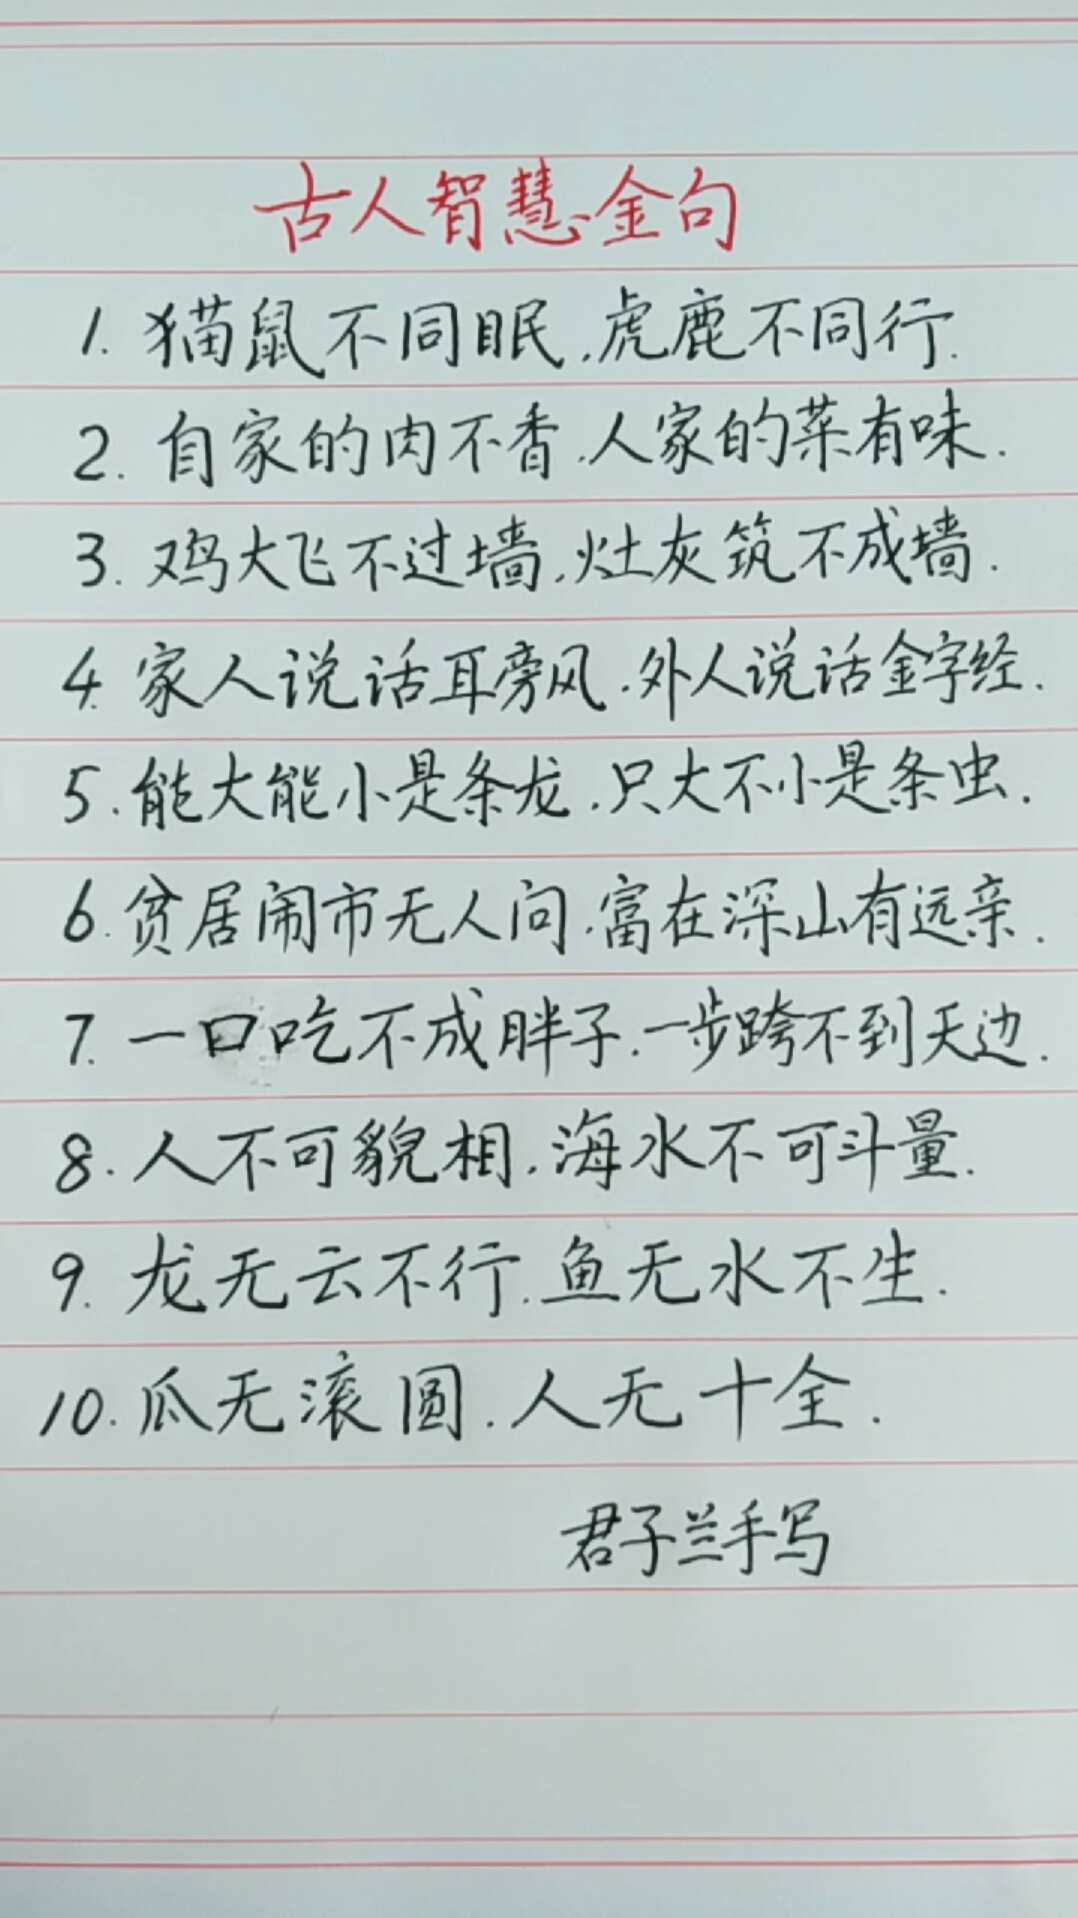 古人智慧金句
1. 猫鼠不同眠,虎鹿不同行.
2. 自家的肉不香,人家的菜有味.
3. 鸡大飞不过墙,灶灰筑不成墙.
4. 家人说话耳旁风,外人说话金字经.
5. 能大能小是条龙,只大不小是条虫.
6. 贫居闹市无人问,富在深山有远亲.
7. 一口吃不成胖子,一步跨不到天边.
8. 人不可貌相,海水不可斗量.
9. 龙无云不行,鱼无水不生.
10. 瓜无滚圆,人无十全.
君子兰手写